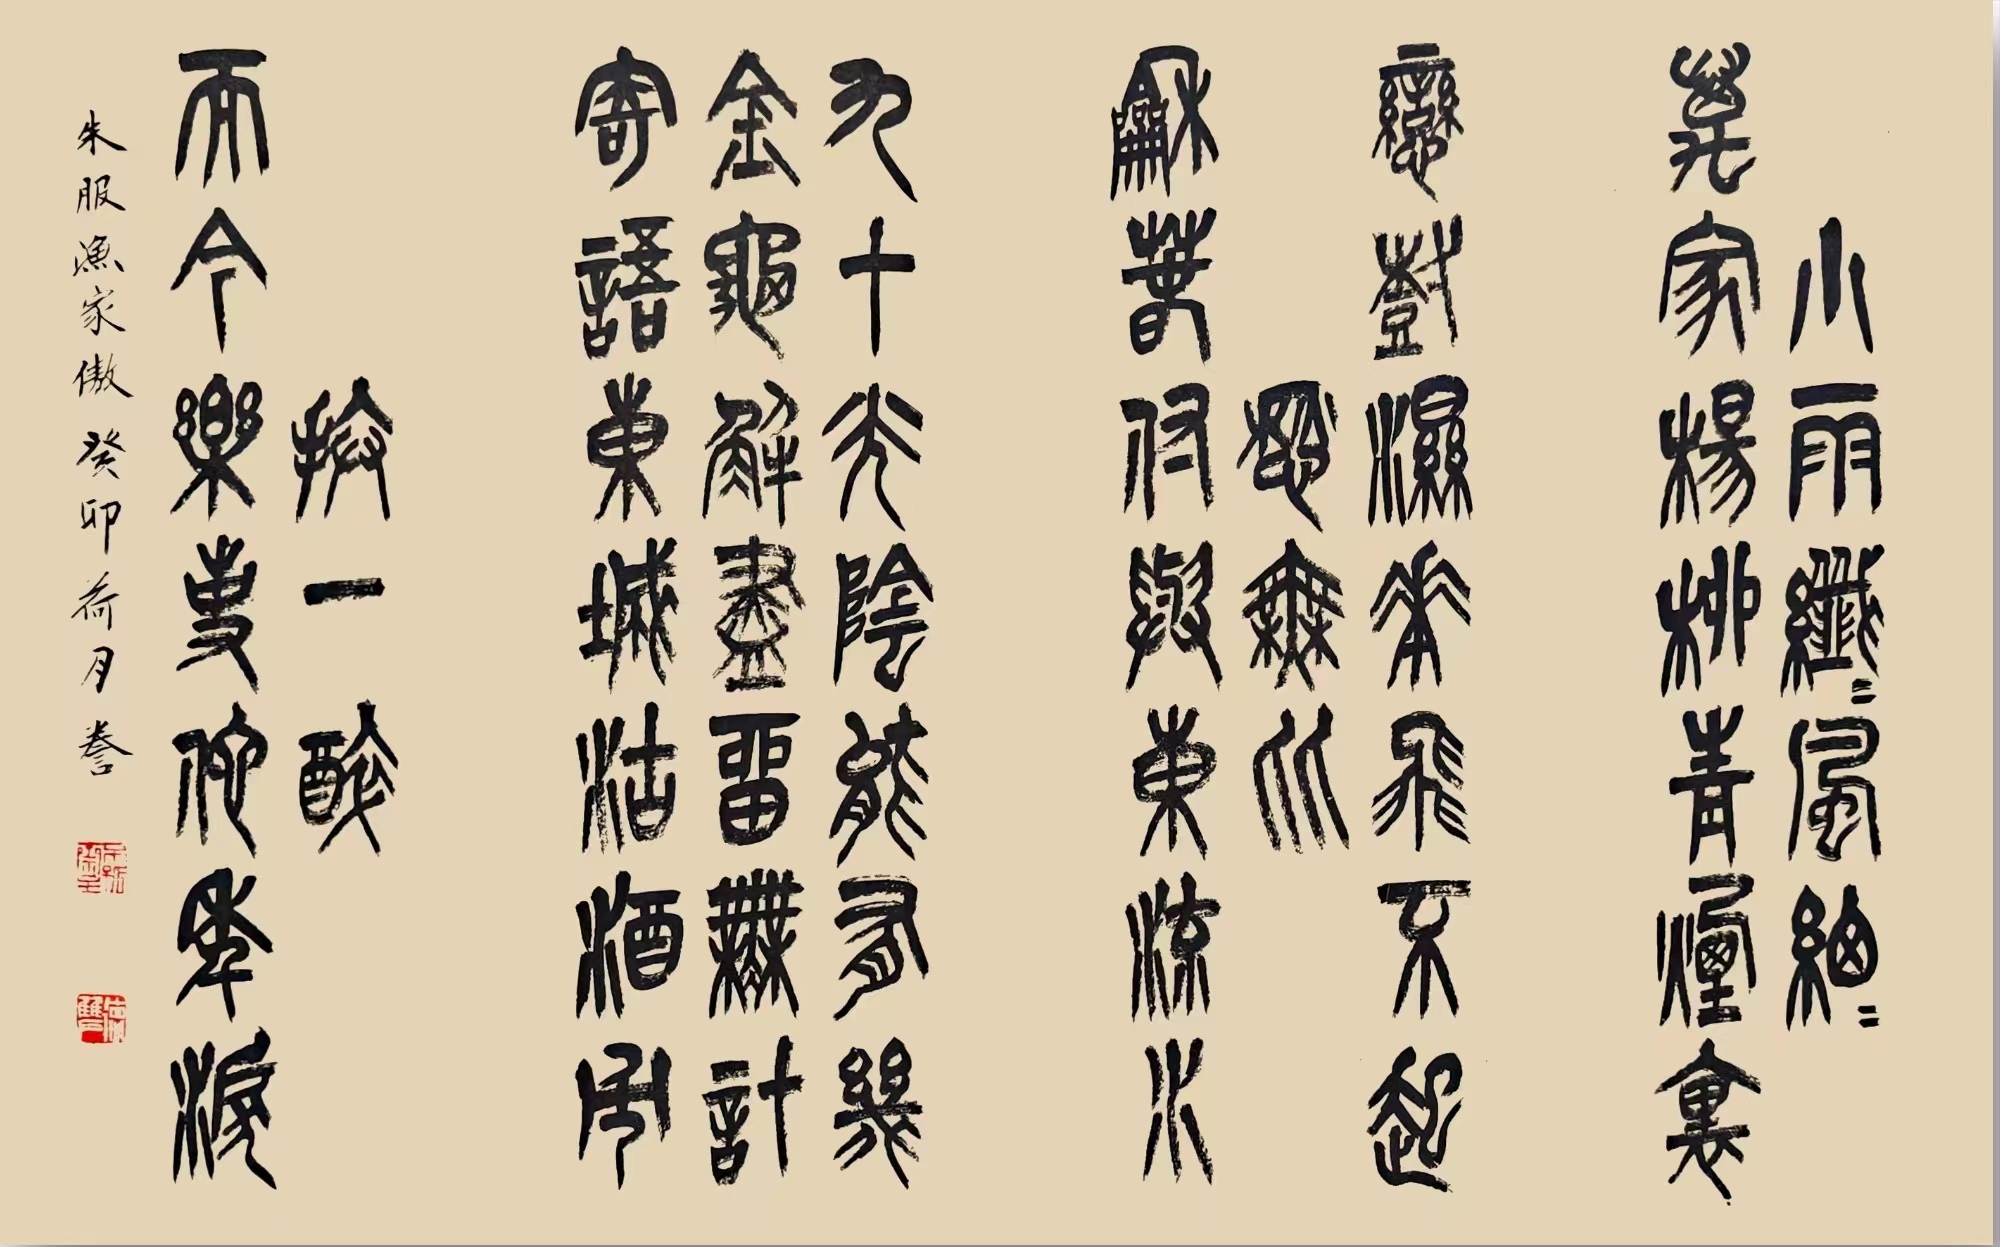 小雨纖〻風細〻
萬家楊柳青煙裏
戀樹濕花飛不起
愁無比
龢春付與東流水
九十光陰能有幾
金龜解盡留無計
寄語東城沽酒市
拚一醉
而今樂事佗年淚
朱服漁家傲 癸卯荷月 誊